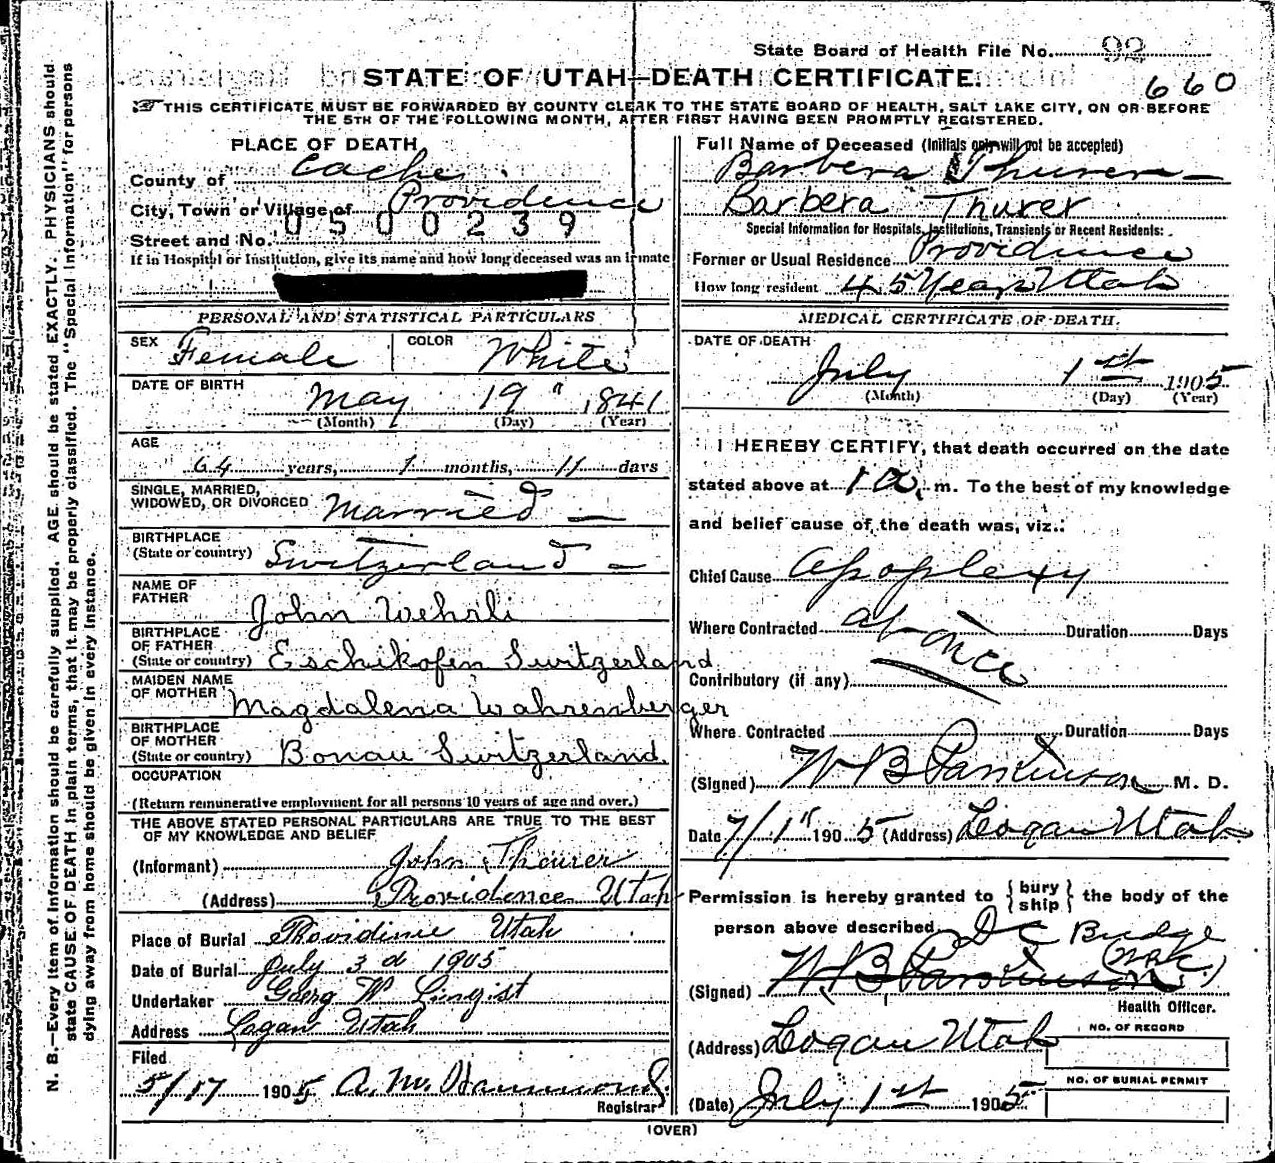 State Board of Health File No. 92
660
STATE OF UTAH—DEATH CERTIFICATE.
THIS CERTIFICATE MUST BE FORWARDED BY COUNTY CLERK TO THE STATE BOARD OF HEALTH, SALT LAKE CITY, ON OR BEFORE
THE 5TH OF THE FOLLOWING MONTH, AFTER FIRST HAVING BEEN PROMPTLY REGISTERED.
N. B.—Every item of information should be carefully supplied. AGE should be stated EXACTLY. PHYSICIANS should
state CAUSE OF DEATH in plain terms, that it may be properly classified. The "Special Information" for persons
dying away from home should be given in every instance.
PLACE OF DEATH
County of Cache
City, Town or Village of Providence
0500239
Street and No.
If in Hospital or Institution, give its name and how long deceased was an inmate
PERSONAL AND STATISTICAL PARTICULARS
SEX Female COLOR White
DATE OF BIRTH
May 19" 1841
(Month) (Day) (Year)
AGE
64 years, 1 months, 11 days
SINGLE, MARRIED,
WIDOWED, OR DIVORCED Married —
BIRTHPLACE
(State or country) Switzerland —
NAME OF
FATHER John Wehrli
BIRTHPLACE
OF FATHER
(State or country) Eschikofen Switzerland
MAIDEN NAME
OF MOTHER Magdalena Wahrenberger
BIRTHPLACE
OF MOTHER
(State or country) Bonau Switzerland.
OCCUPATION
(Return remunerative employment for all persons 10 years of age and over.)
THE ABOVE STATED PERSONAL PARTICULARS ARE TRUE TO THE BEST
OF MY KNOWLEDGE AND BELIEF
(Informant) John Theurer
(Address) Providence Utah
Place of Burial Providence Utah
Date of Burial July 3d 1905
Undertaker Georg W Lindqist
Address Logan Utah
Filed
5/17 1905 A. M. Hammond
Registrar
Full Name of Deceased (Initials only will not be accepted)
Barbera Thurer —
Barbera Thurer
Special Information for Hospitals, Institutions, Transients or Recent Residents:
Former or Usual Residence Providence
How long resident 45 Years Utah
MEDICAL CERTIFICATE OF DEATH.
DATE OF DEATH
July 1st 1905
(Month) (Day) (Year)
I HEREBY CERTIFY, that death occurred on the date
stated above at 1 a. m. To the best of my knowledge
and belief cause of the death was, viz.:
Chief Cause Apoplexy
Where Contracted at once Duration Days
Contributory (if any)
Where Contracted Duration Days
(Signed) W B Parkinson M. D.
Date 7/1" 1905 (Address) Logan Utah
Permission is hereby granted to {bury ship} the body of the
person above described. D C Budge
(Signed) W. B Parkinson
Health Officer.
(Address) Logan Utah
NO. OF RECORD
NO. OF BURIAL PERMIT
(Date) July 1st 1905
(OVER)